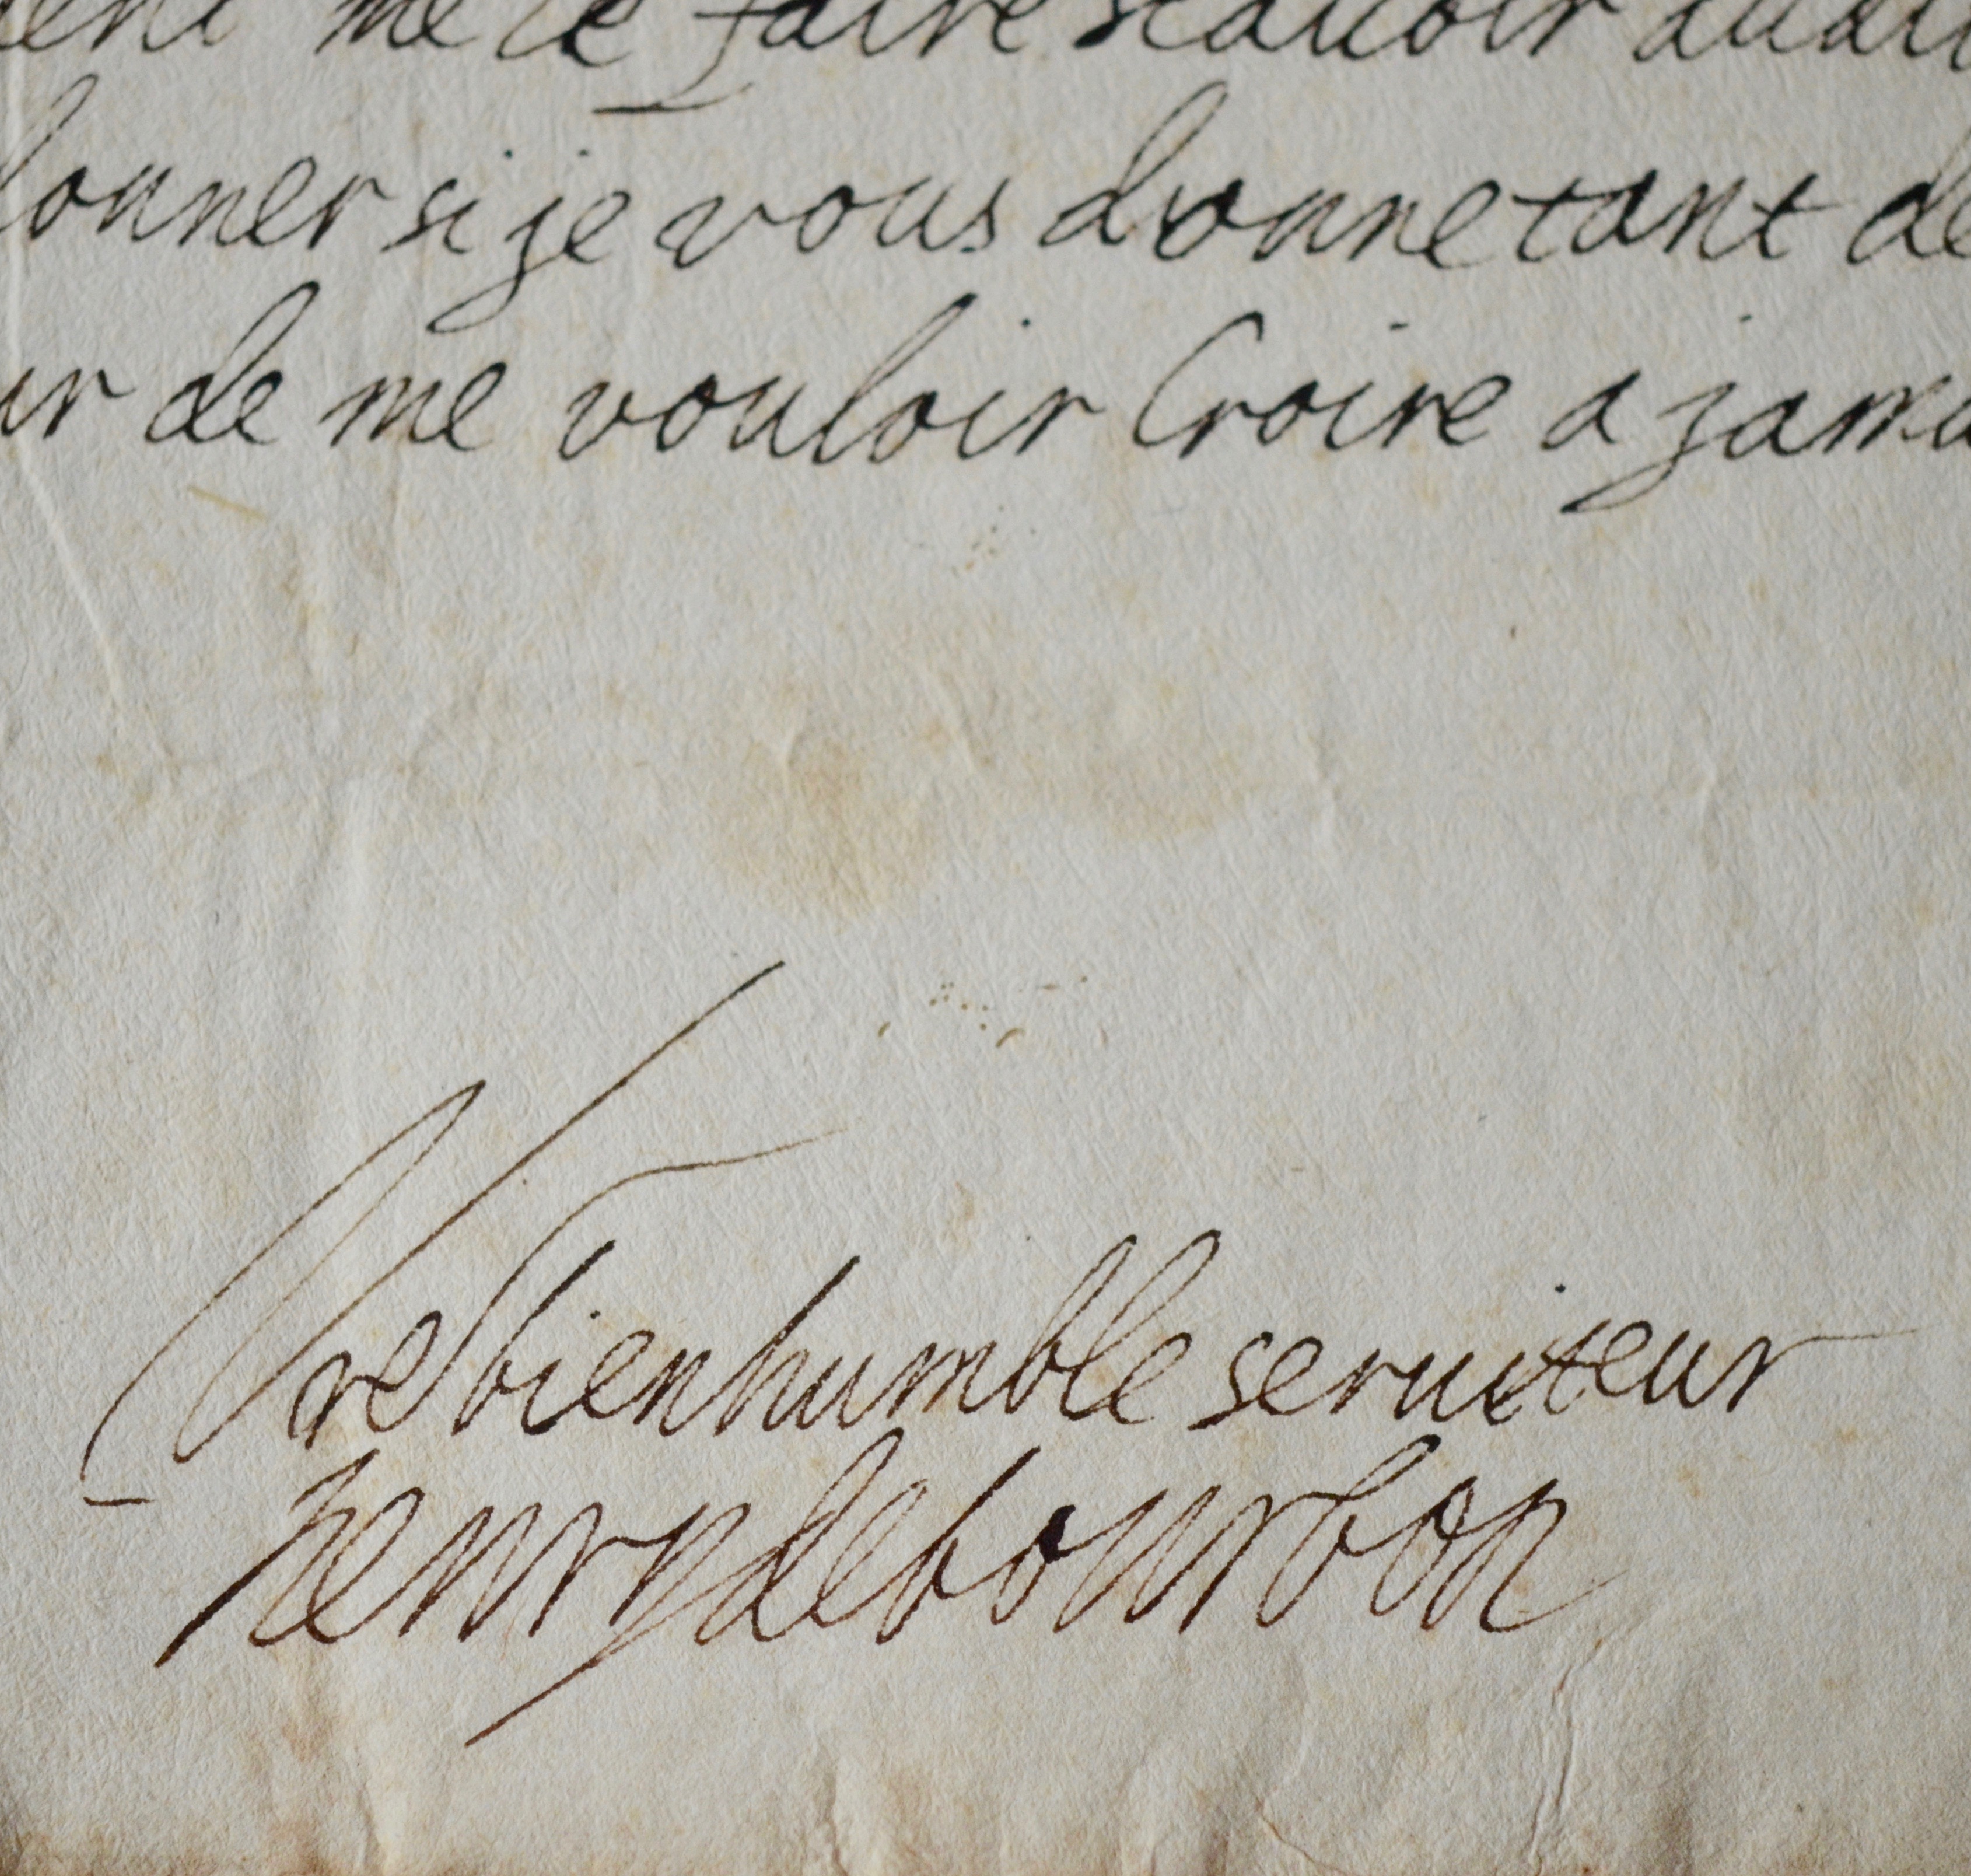 me le faire scauoir
donner si je vous donne tant de
ur de me vouloir Croire a jama
Vre bien humble seruiteur
henry de bourbon